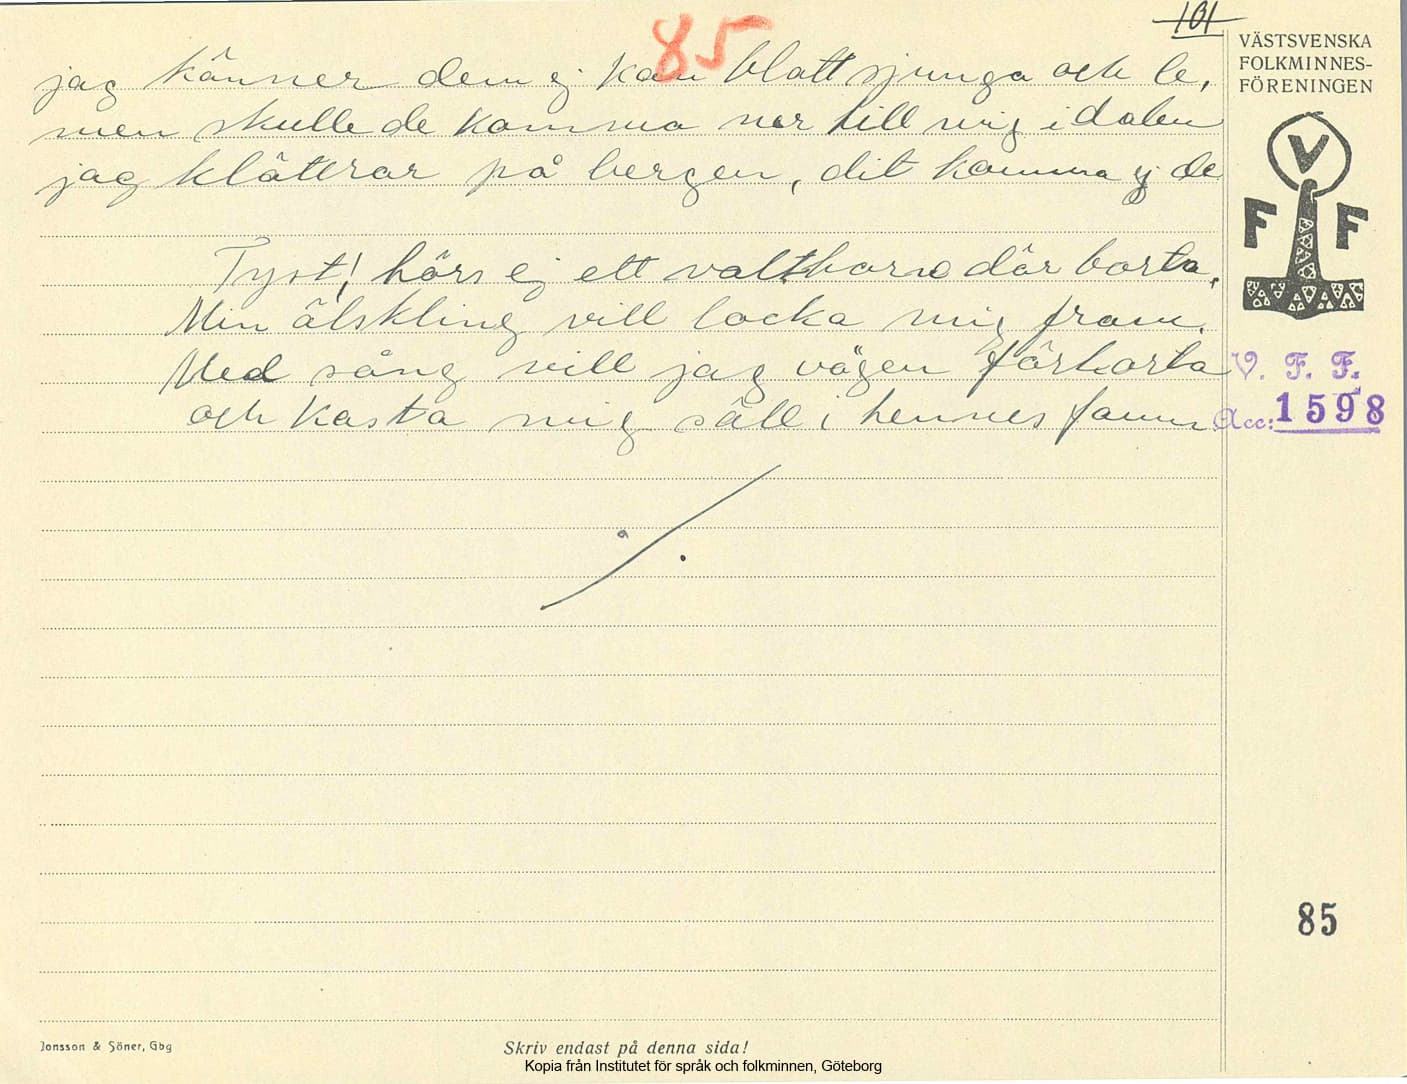 101
85
VÄSTSVENSKA
FOLKMINNES-
FÖRENINGEN
V
F F
jag känner dem ej kan blott sjunga och le,
men skulle de komma ner till mig i dalen
jag klättrar på bergen, dit komma ej de
Tyst! hörs ej ett valthorn där borta.
Min älskling vill locka mig fram.
Med sång vill jag vägen förkorta
och kasta mig säll i hennes famn.
V. F. F.
Acc: 1598
85
Jonsson & Söner, Gbg
Skriv endast på denna sida!
Kopia från Institutet för språk och folkminnen, Göteborg